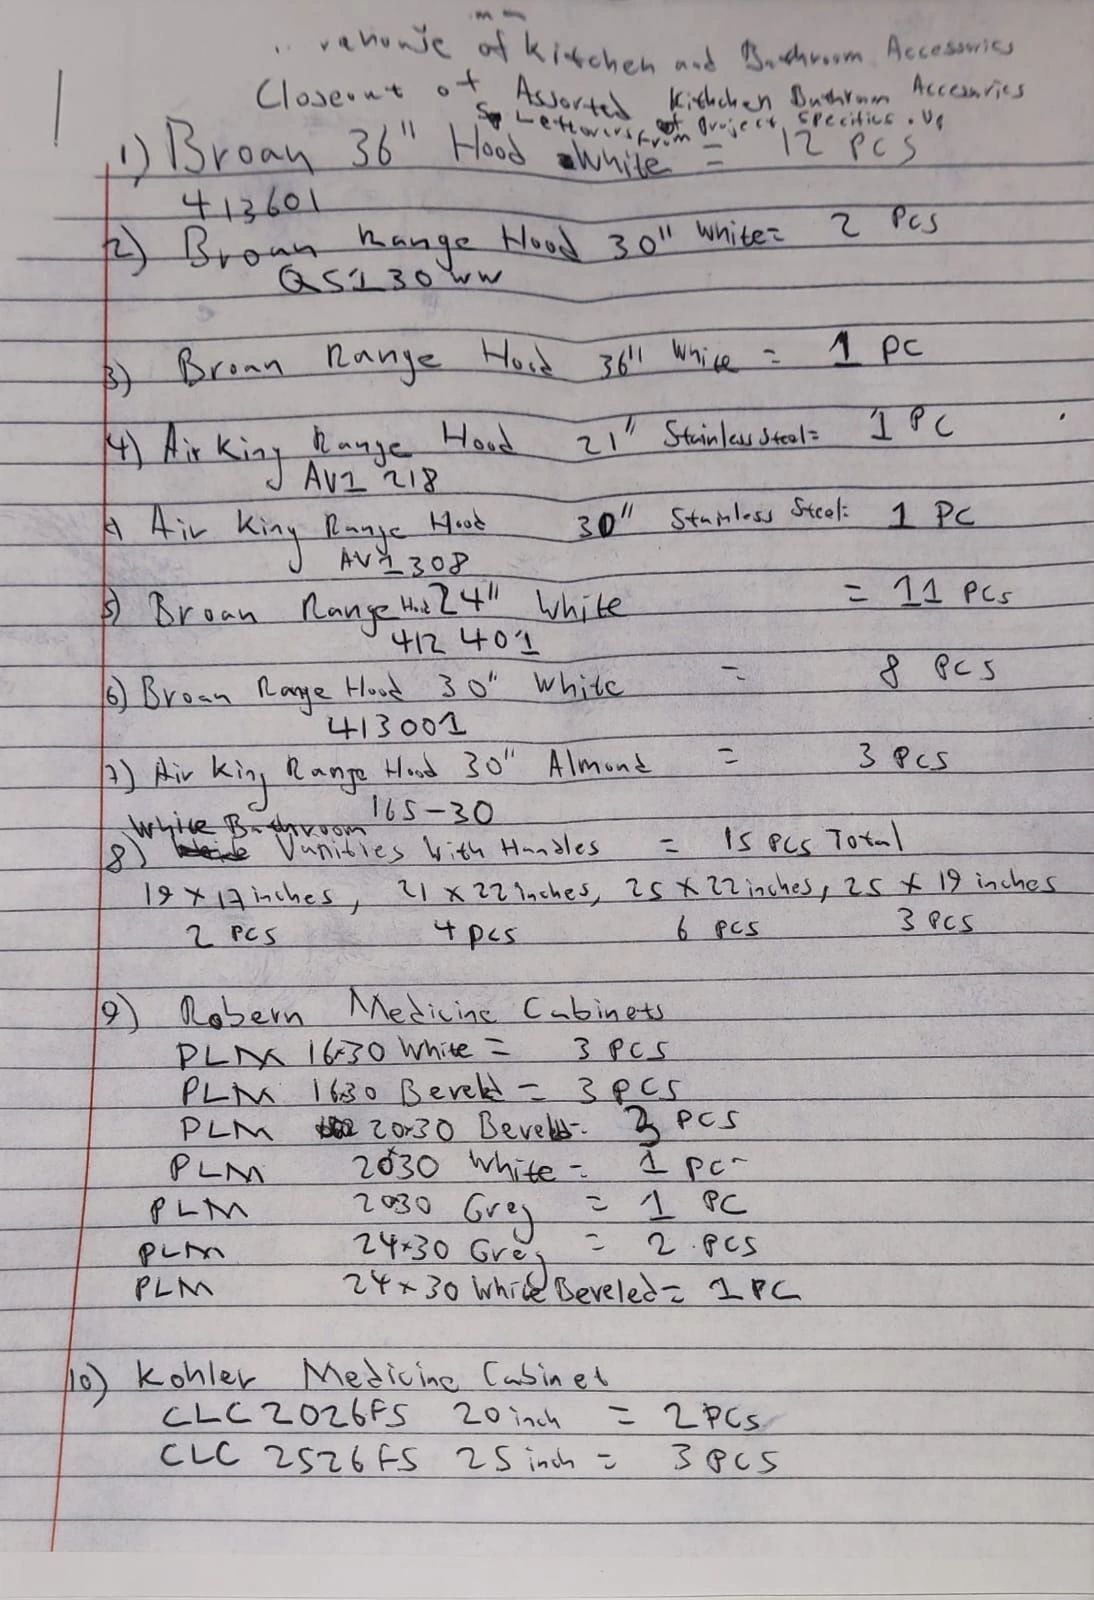 of Kitchen and Bathroom Accessories
Closeout of Assorted Kithchen Bathroom Accesories
Leftovers from project specifics.
1) Broan 36" Hood White = 12 pcs
413601
2) Broan Range Hood 30" White = 2 Pcs
QS130WW
3) Broan Range Hood 36" White = 1 pc
4) Air King Range Hood 21" Stainless Steel = 1 PC
AV1218
Air King Range Hood 30" Stainless Steel = 1 PC
AV1308
5) Broan Range Hood 24" White = 11 pcs
412401
6) Broan Range Hood 30" White = 8 PCS
413001
7) Air King Range Hood 30" Almond = 3 PCS
165-30
White Bathroom
8) Vanities With Handles = 15 pcs Total
19 x 17 inches, 21 x 22 inches, 25 x 22 inches, 25 x 19 inches
2 PCS 4 pcs 6 pcs 3 PCS
9) Robern Medicine Cabinets
PLM 16x30 White = 3 PCS
PLM 1630 Beveld = 3 PCS
PLM 20x30 Beveld = 3 PCS
PLM 2030 White = 1 pc
PLM 2030 Grey = 1 PC
PLM 24x30 Grey = 2 PCS
PLM 24x30 White Beveled = 1 PC
10) Kohler Medicine Cabinet
CLC2026FS 20 inch = 2 PCs
CLC 2526FS 25 inch = 3 PCS